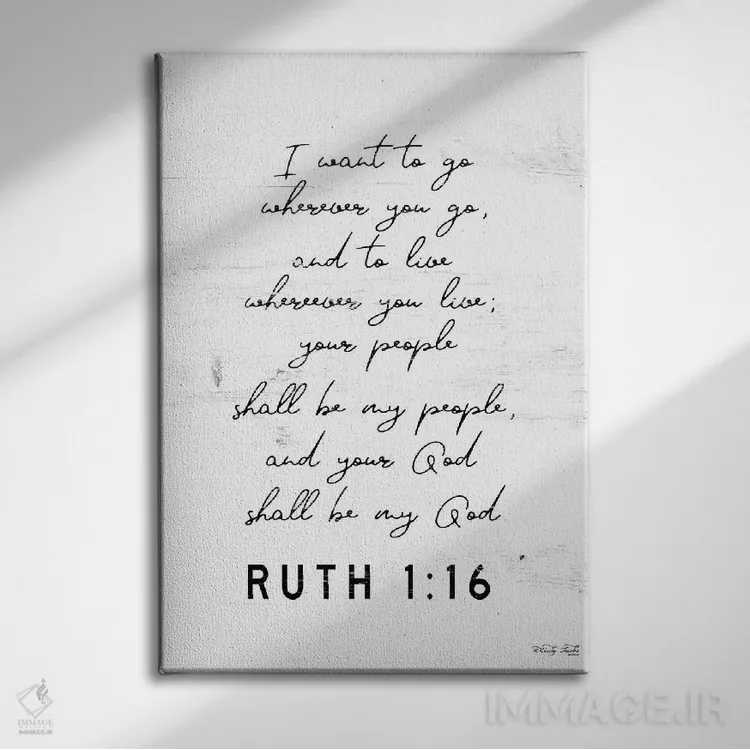 I want to go
wherever you go,
and to live
whereever you live;
your people
shall be my people,
and your God
shall be my God
RUTH 1:16
IMMAGE
IMMAGE.IR
IMMAGE.IR